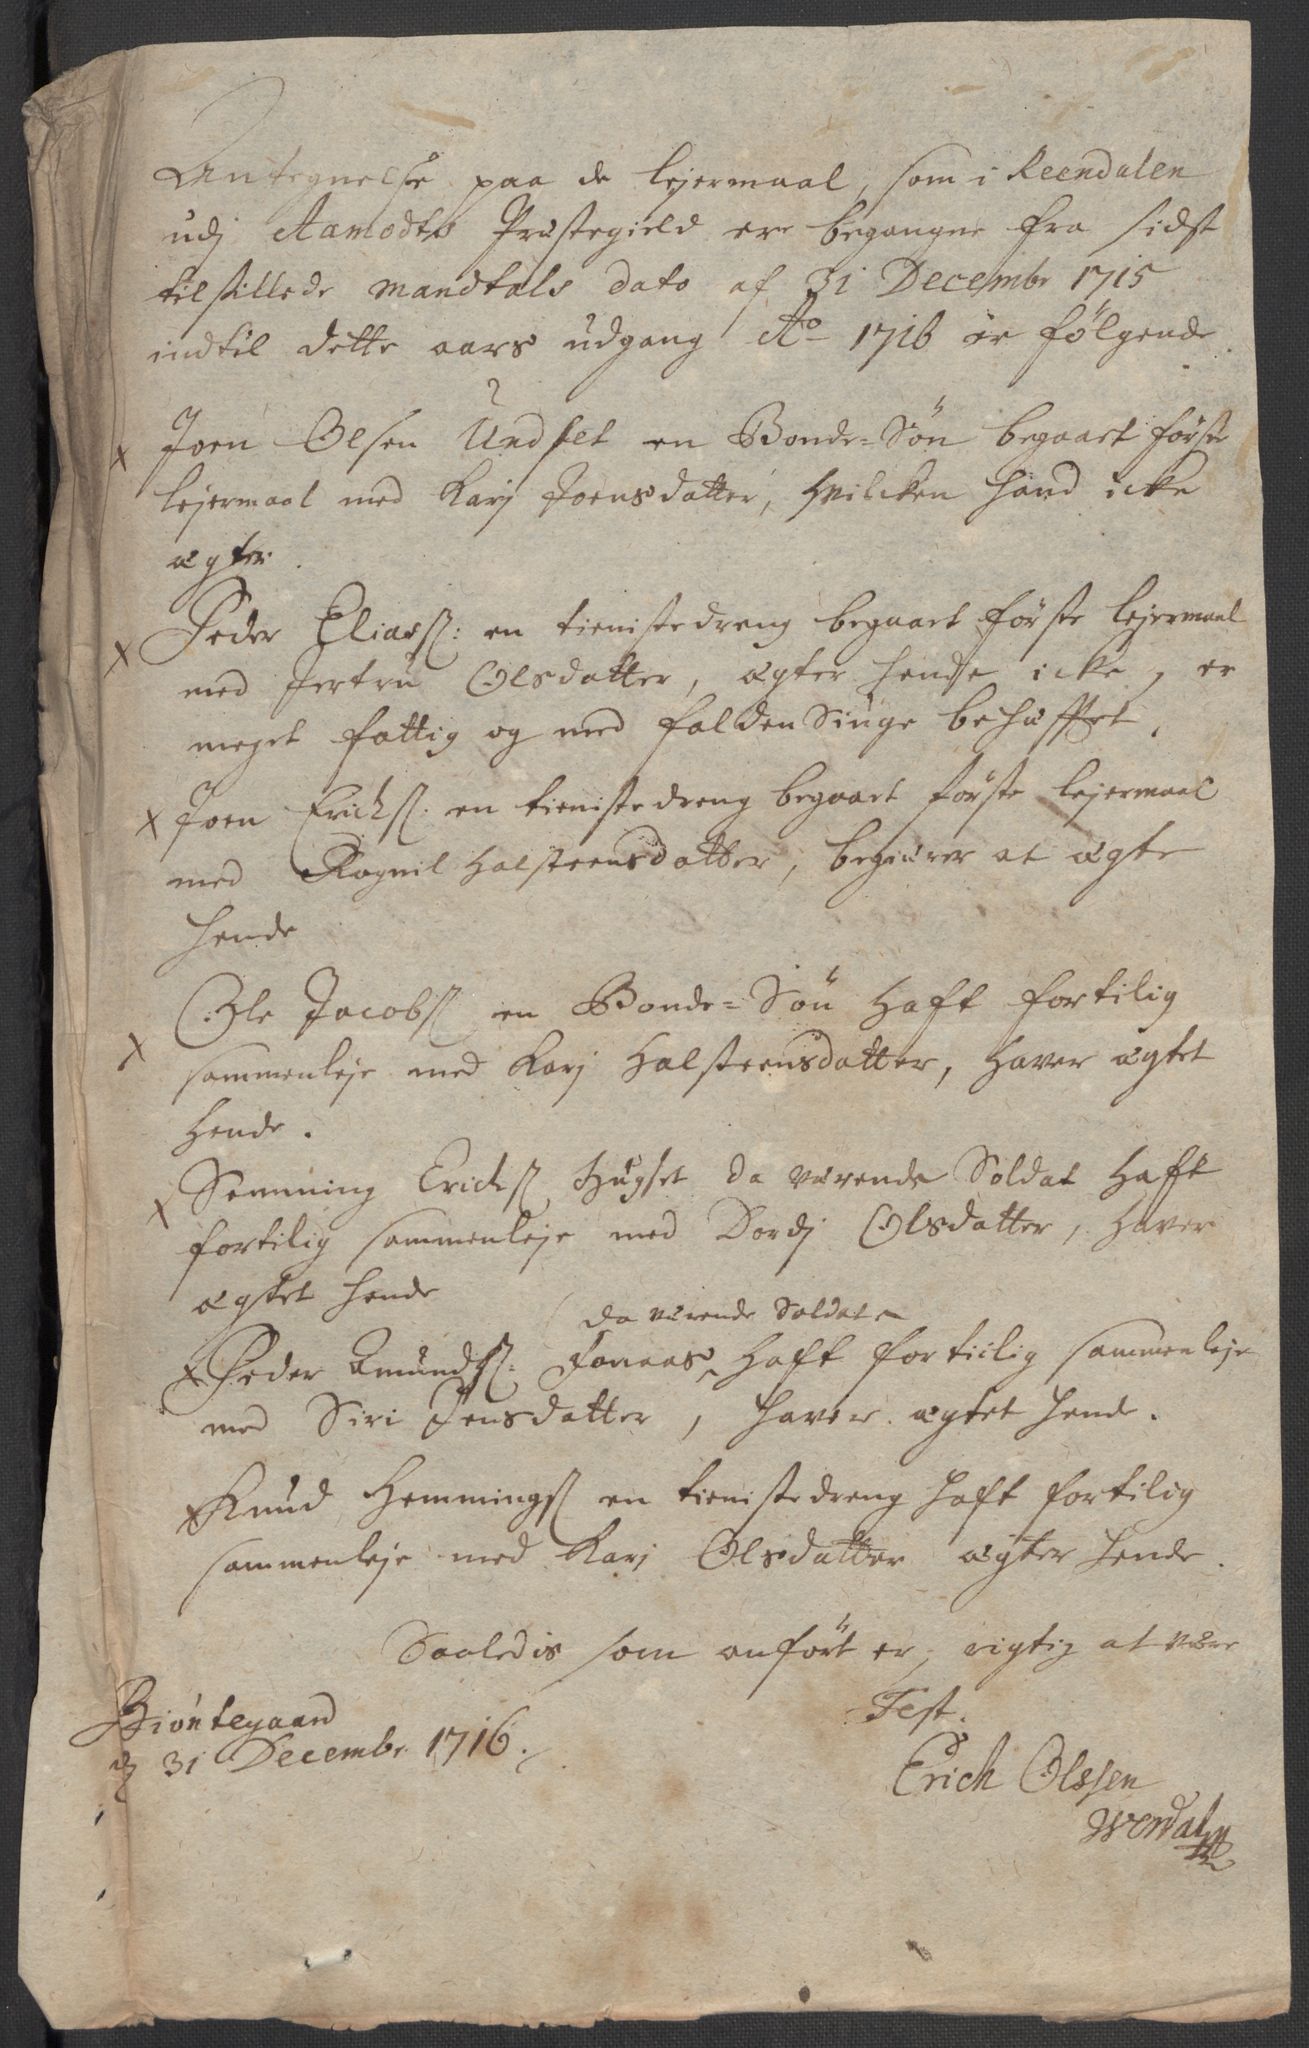 Antegnelse paa de lejermaal, som i Reendalen
udj Aamodts Præstegield ere begangne fra sidst
tilstillede Mandtals dato af 31 Decembr 1715
indtil dette aars udgang Ao 1716 er følgende.
x Joen Olsen Undset en Bonde=Søn begaaet første
lejermaal med Karj Joensdatter, hvilcken hand icke
ægter.
x Peder Eliasß: en tienistedreng begaaet første lejermaal
med Jertru Olsdatter, ægter hende icke, er
meget fattig og med faldensiuge behefftet,
x Joen Erichß: en tienistedreng begaaet første lejermaal
med Ragnil Halsteensdatter, begiærer at ægte
hende
x Ole Jacobß en Bonde=Søn haft fortilig
sammenleje med Karj Halsteensdatter, haver ægtet
hende.
x Semming Erichß Hugset da værende Soldat haft
fortilig sammenleje med Dordj Olsdatter, haver
ægtet hende
da værende Soldat
x Peder Amundß: Fonaas haft fortilig sammenleje
med Siri Jensdatter, haver ægtet hende.
x Knud Hemmingß en tienistedreng haft fortilig
sammenleje med Karj Olsdatter ægter hende.
Saaledis som anført er, rigtig at være
Test.
Biöntegaard
d 31 Decembr. 1716.
Erich Olssen
Werdalm